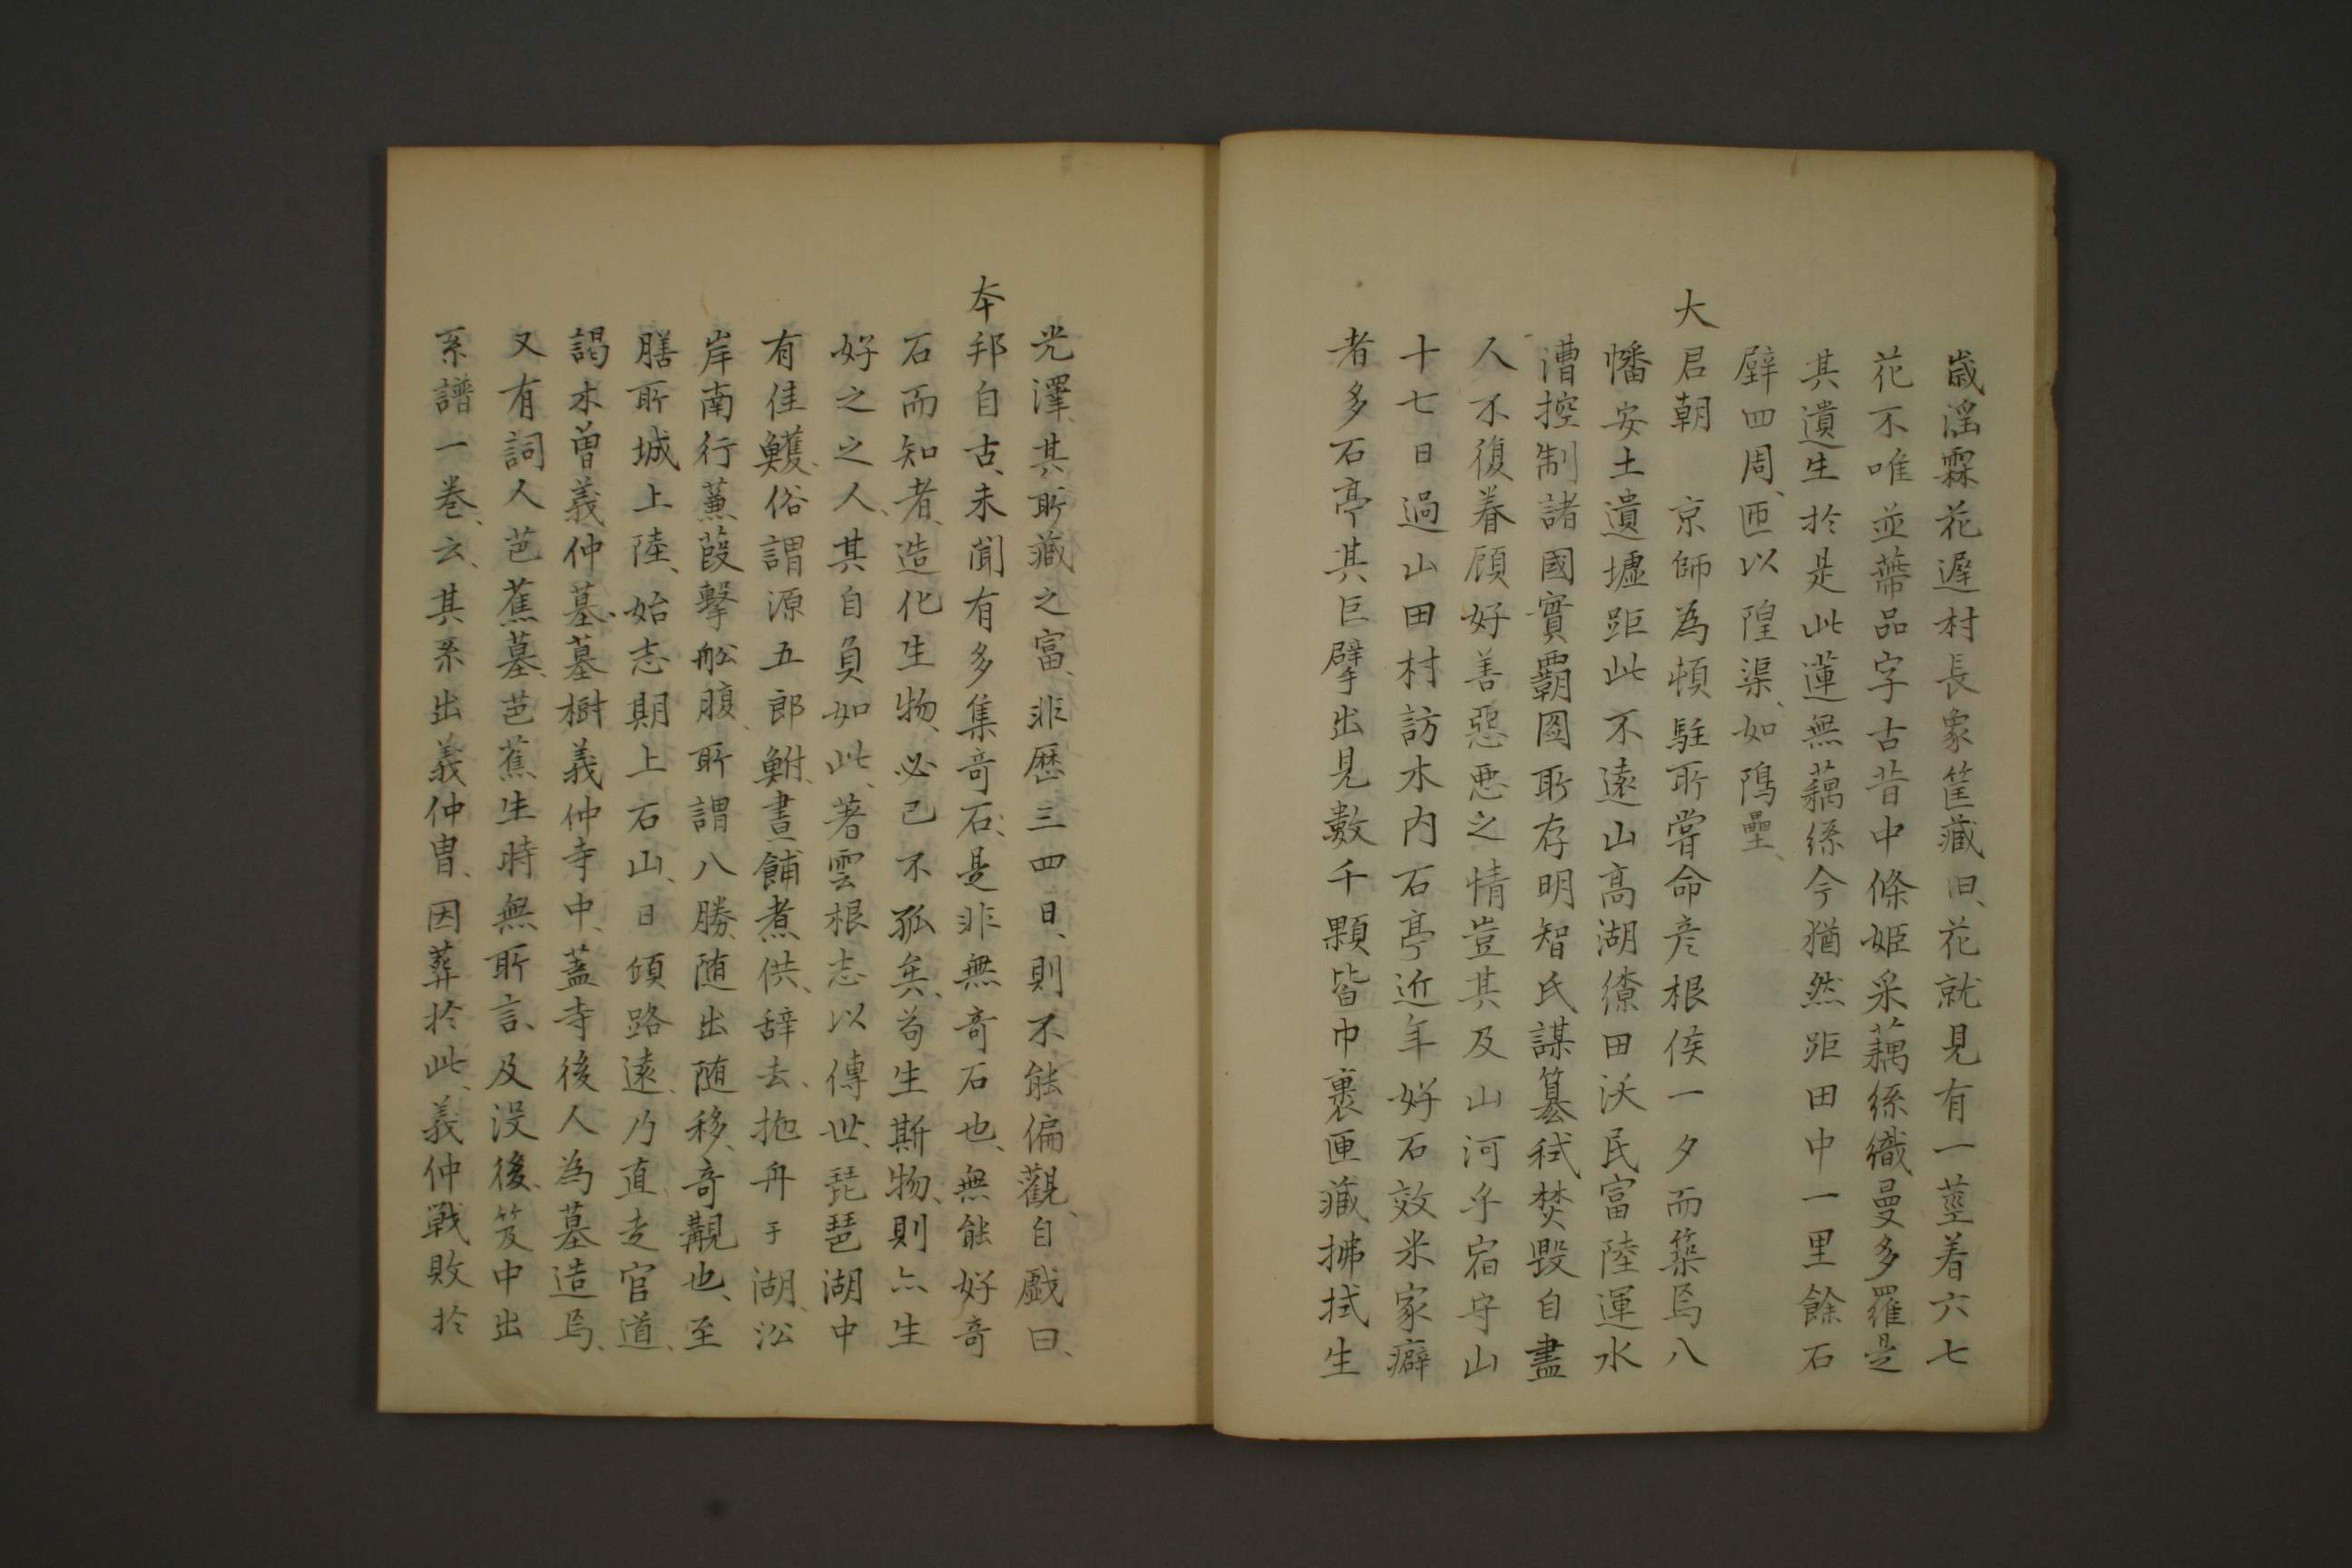 歳淫霖花遅村長象筐藏旧、花就見有一莖着六七
花不唯並蔕品字古昔中條姫采藕絲織曼多羅是
其遺生於是此蓮無藕絲今猶然距田中一里餘石
壁四周、匝以隍渠、如隝壘、
大君朝　京師為頓駐所嘗命彦根侯一夕而築焉八
幡安土遺墟距此不遠山高湖繚田沃民富陸運水
漕控制諸國實覇圖所存明智氏謀簒弑焚毀自盡
人不復眷顧好善惡惡之情豈其及山河乎宿守山
十七日過山田村訪木内石亭近年好石效米家癖
者多石亭其巨擘出見數千顆皆巾裹匣藏拂拭生
光澤、其所藏之富、非歴三四日、則不能偏觀、自戯曰、
本邦自古、未聞有多集奇石、是非無奇石也、無能好奇
石而知者、造化生物、必已不孤矣、苟生斯物、則亦生
好之之人、其自負如此、著雲根志以傳世、琵琶湖中
有佳鱯、俗謂源五郎鮒、晝餔煮供、辞去、拖舟于湖、沿
岸南行蒹葭擊舩腹、所謂八勝、随出随移、奇覯也、至
膳所城上陸、始志期上石山、日傾路遠、乃直走官道、
謁木曽義仲墓、墓樹義仲寺中、蓋寺後人為墓造焉、
又有詞人芭蕉墓、芭蕉生時無所言、及没後、笈中出
系譜一巻、云、其系出義仲冑、因葬於此、義仲戰敗於